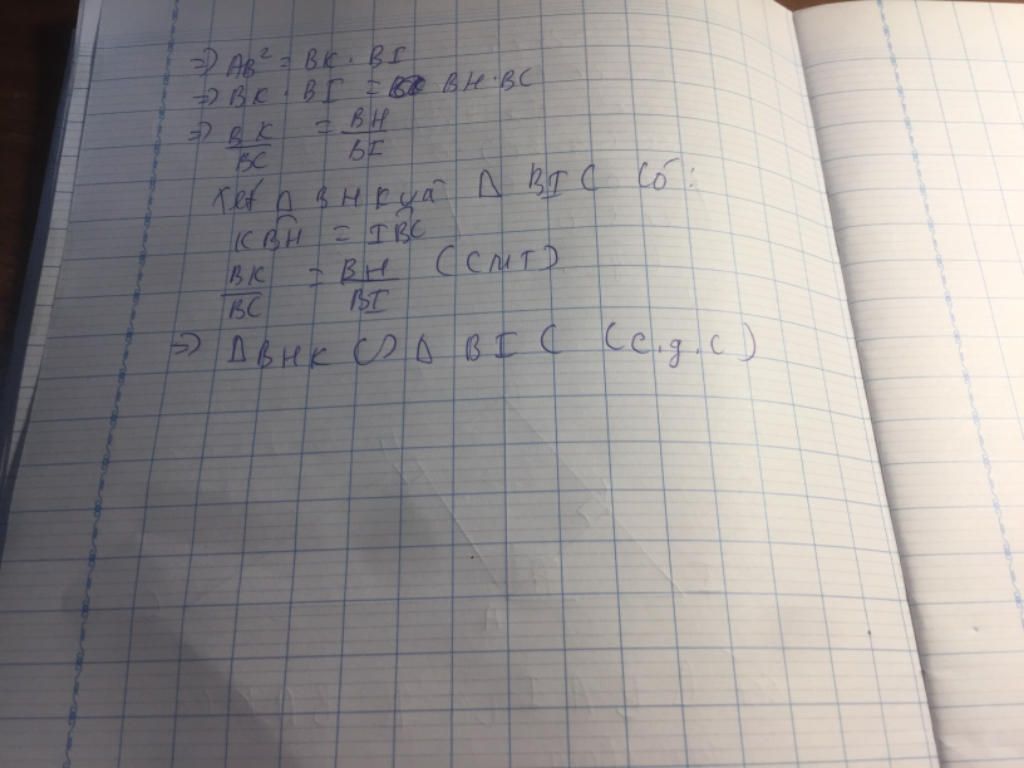 => AB² = BK . BI
=> BK . BI = BH . BC
=> BK/BC = BH/BI
Xét Δ BHK và Δ BIC Có :
KBH = IBC
BK/BC = BH/BI (CMT)
=> ΔBHK ∽ Δ BIC (c.g.c)